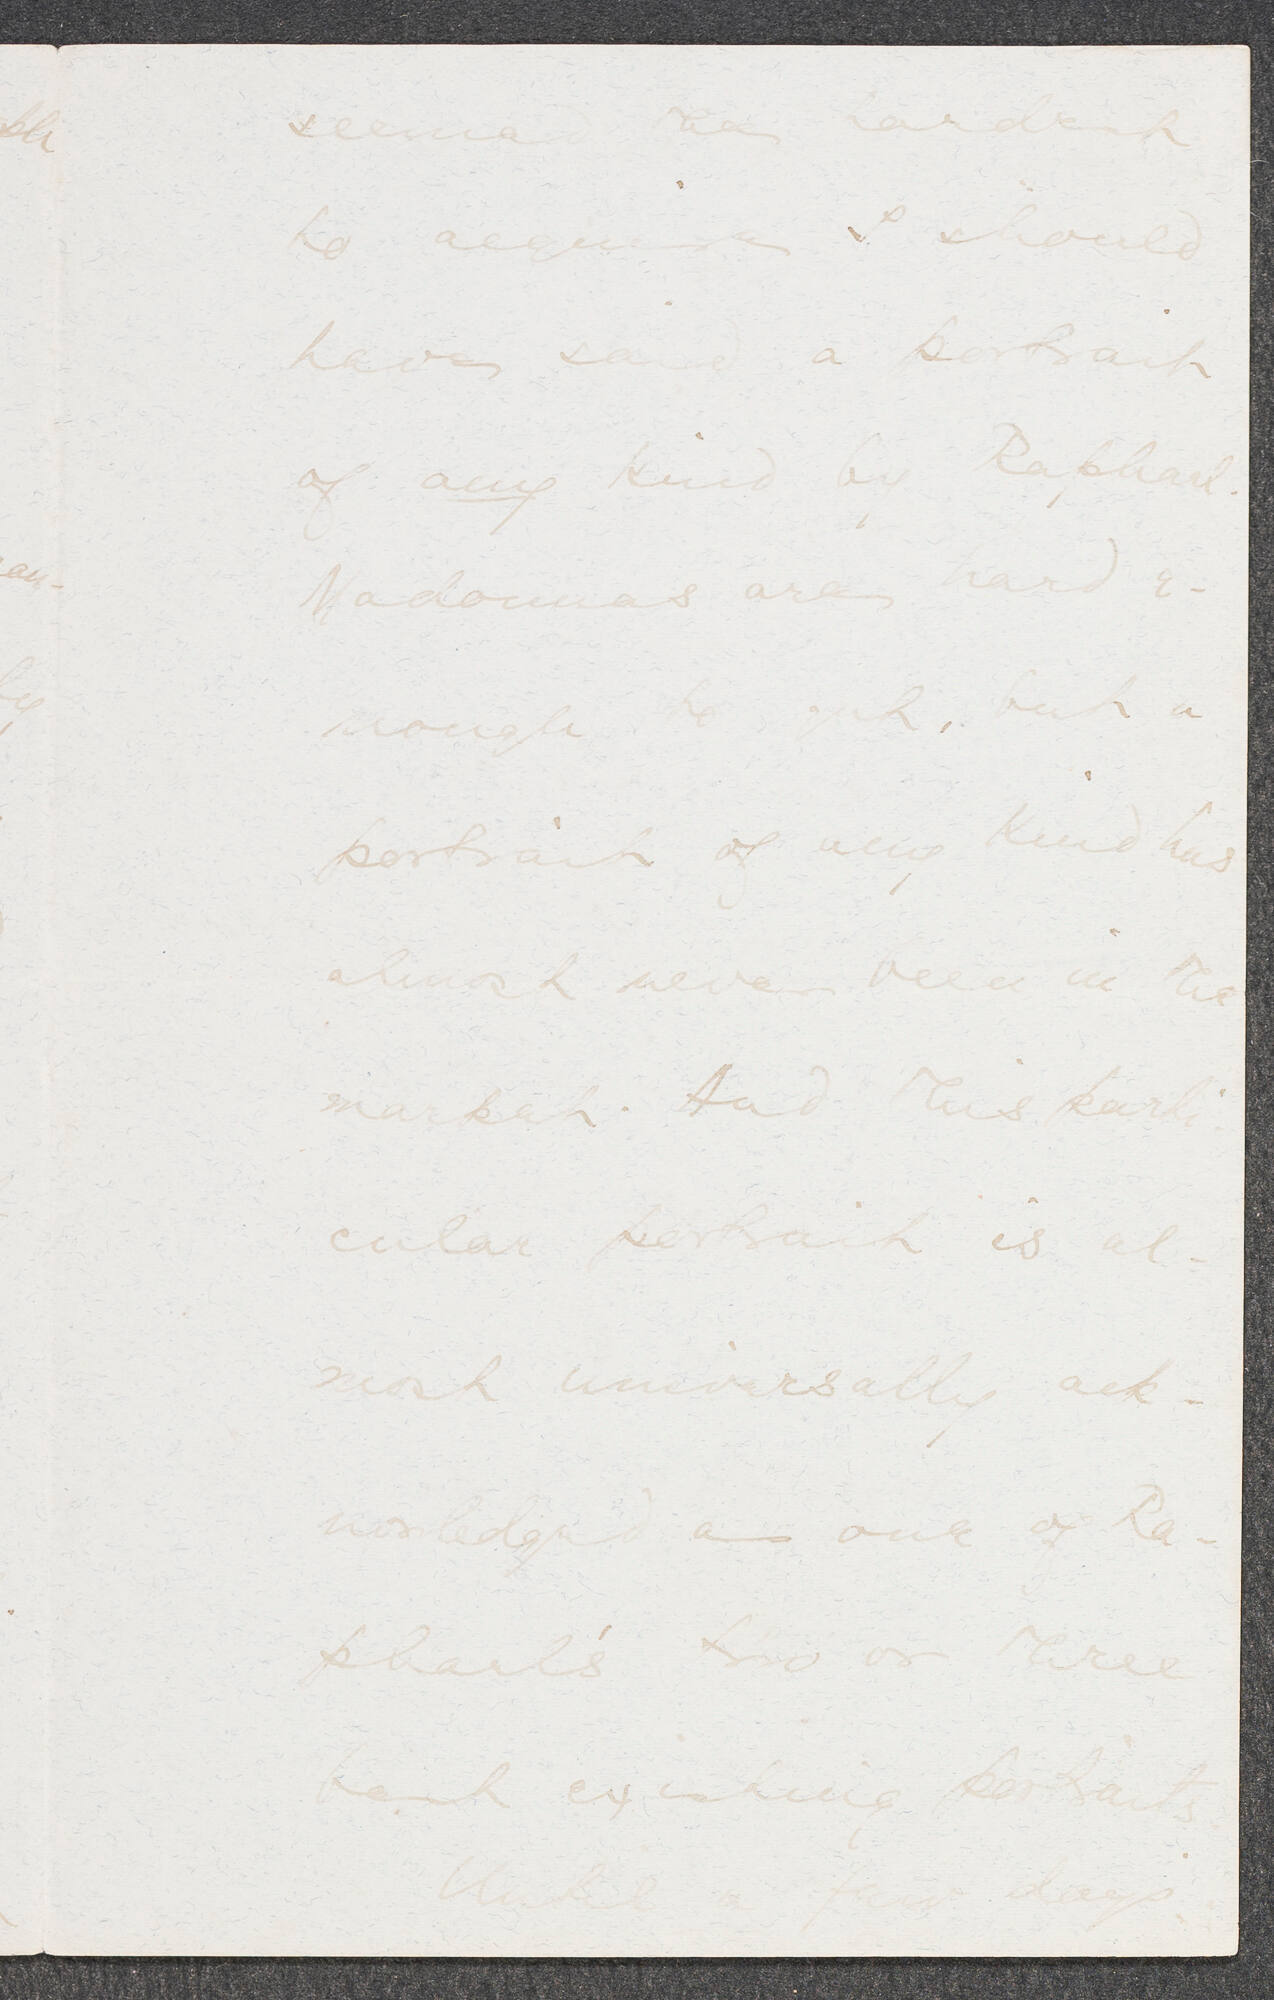 seemed the hardest
to acquire I should
have said a portrait
of any kind by Raphael.
Madonnas are hard e-
nough to get, but a
portrait of any kind has
almost never been in the
market. And this parti-
cular portrait is al-
most universally ack-
nowledged as one of Ra-
phael's two or three
best existing portraits.
Until a few days